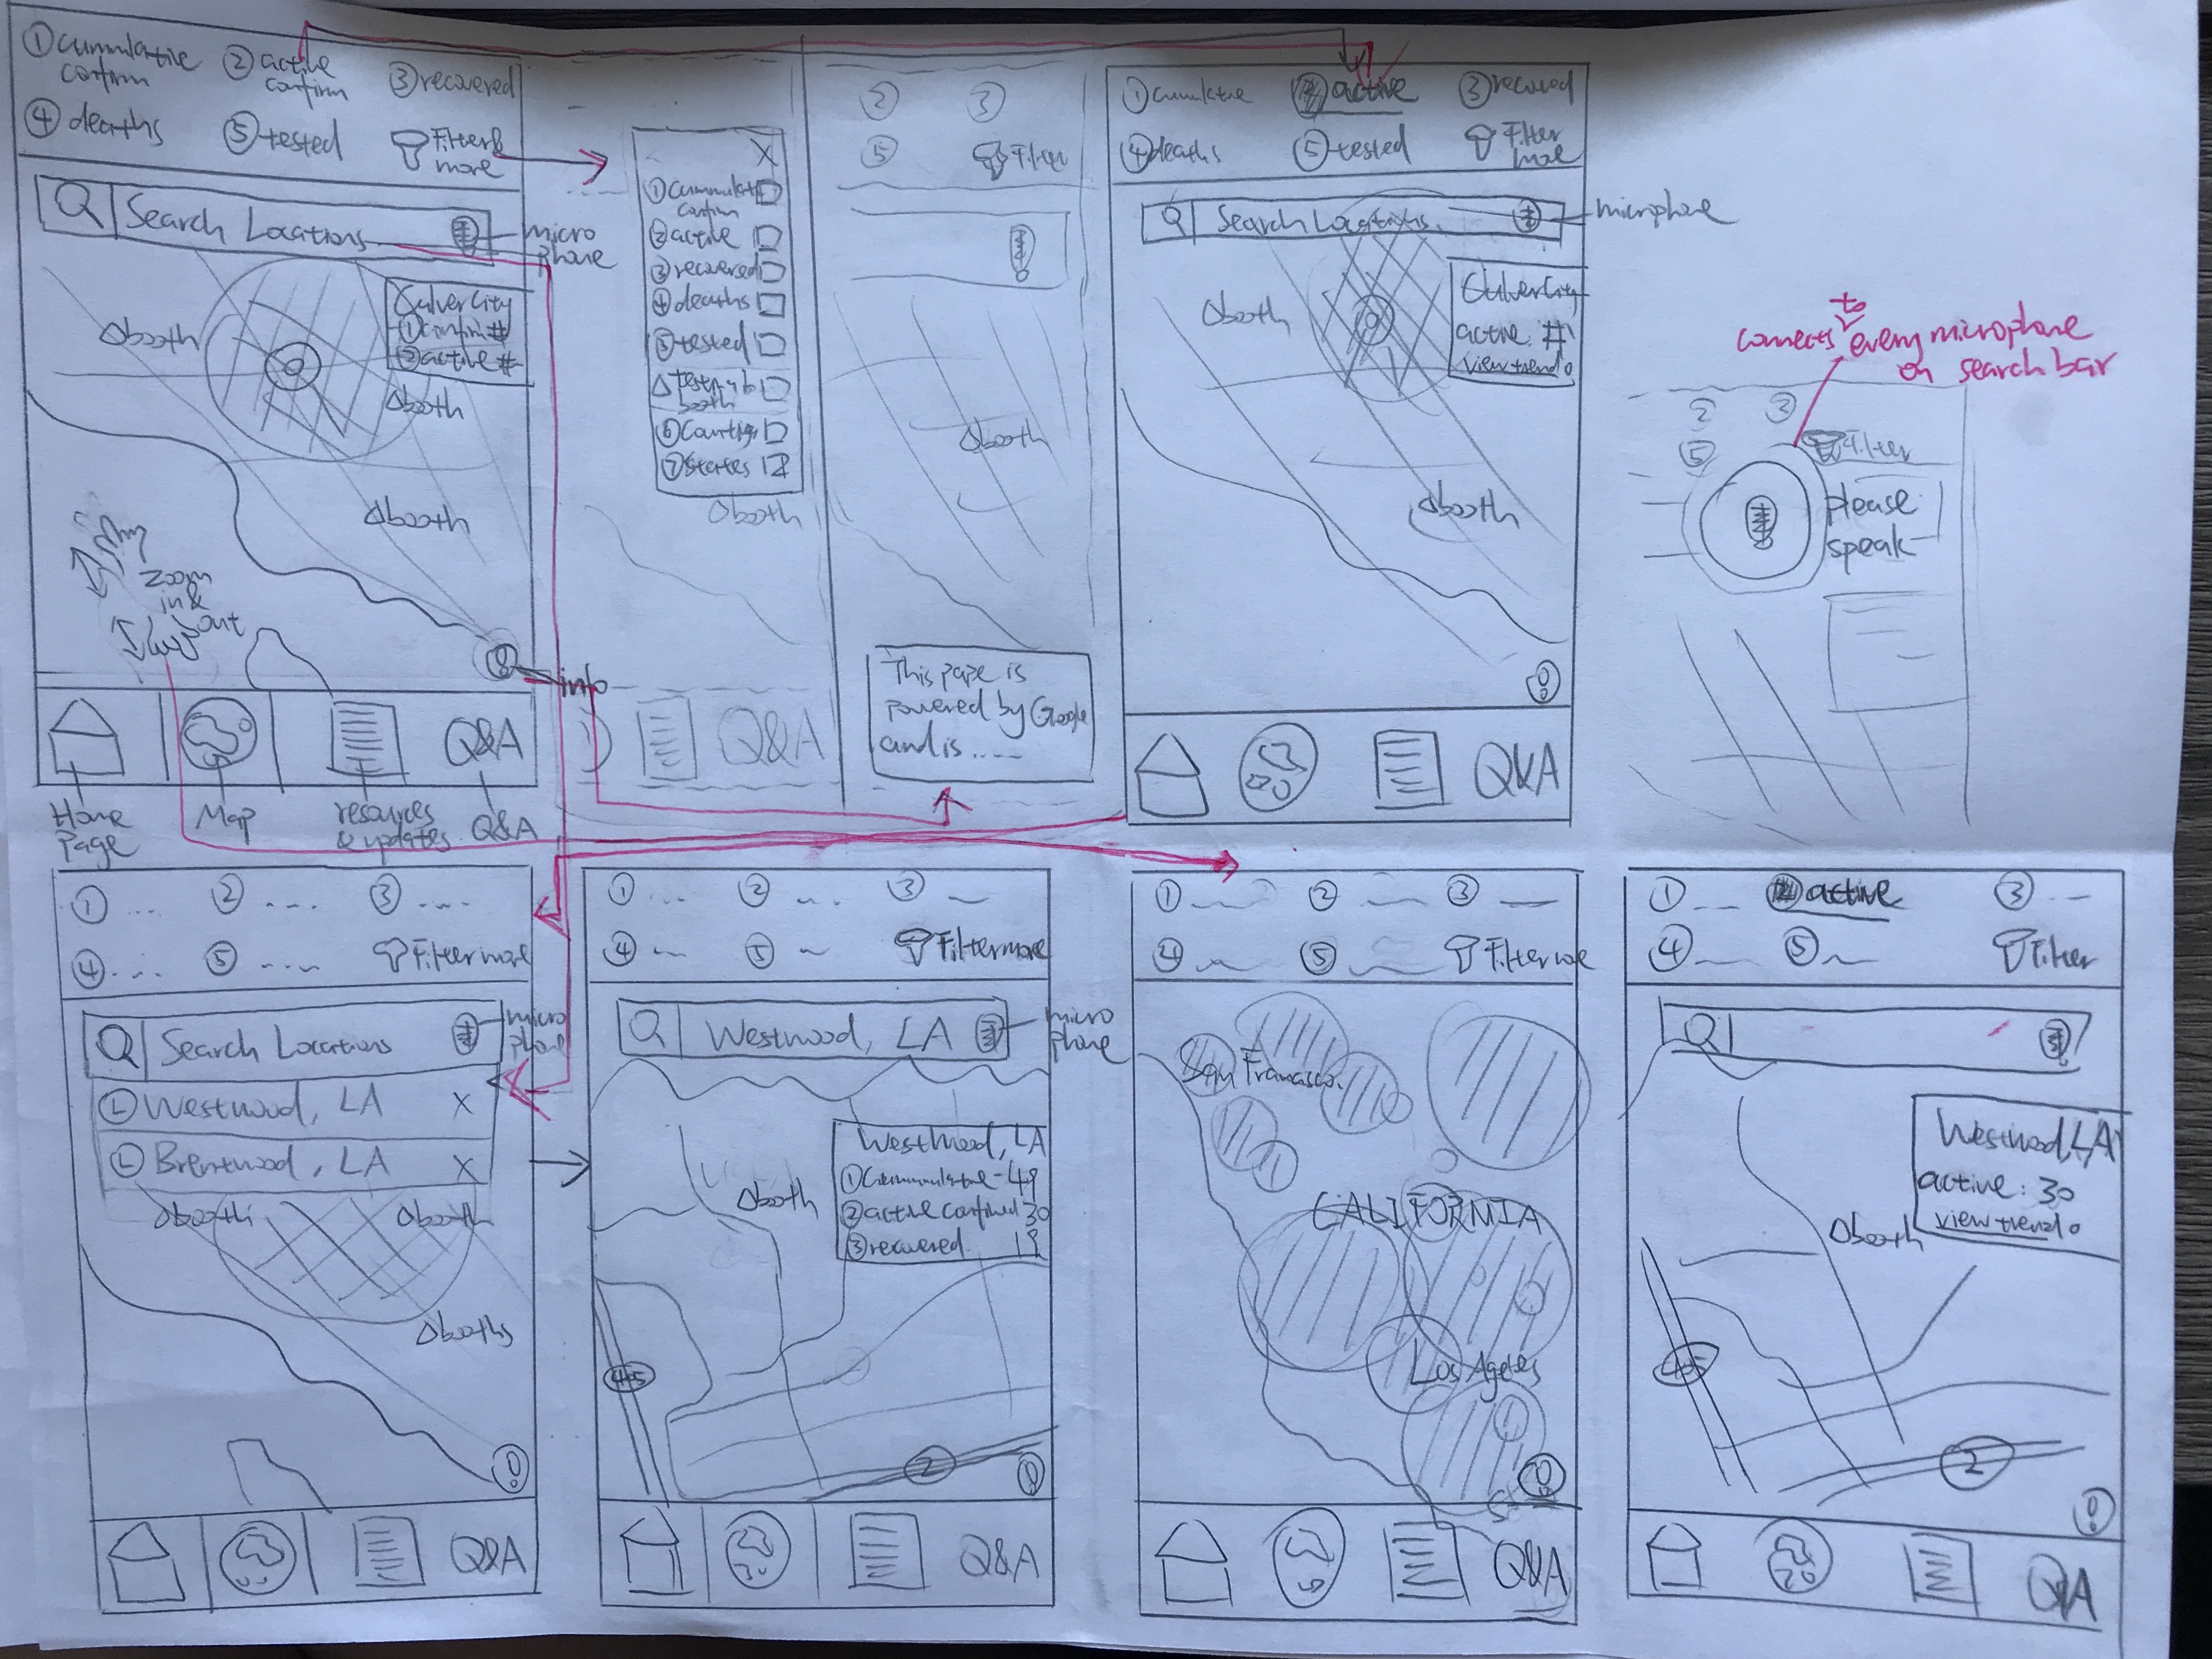 ① cummulative
confirm
② active
confirm
③ recovered
④ deaths
⑤ tested
Filter &
more
Search Locations
micro
phone
Culver City
① confirm #
② active #
△booth
△booth
△booth
Zoom
in &
out
info
Q&A
Home
Page
Map
resources
& updates
Q&A
X
① Cummulati
confirm
② active
③ recovered
④ deaths
⑤ tested
△ testing
booth
⑥ Counties
⑦ States
△booth
Q&A
② ③
⑤ Filter
△booth
This page is
powered by Google
and is ....
① cumulative
② active
③ recovered
④ deaths
⑤ tested
Filter
more
Search Locations
microphone
Culver City
active: #
view trend
△booth
△booth
Q&A
connects to every microphone
on search bar
② ③
⑤ Filter
please
speak
① ... ② .... ③ ....
④ ... ⑤ .... Filter more
Search Locations
micro
phone
Ⓛ Westwood, LA X
Ⓛ Brentwood, LA X
△booth
△booth
△booths
Q&A
① ... ② ... ③
④ ⑤ Filter more
Westwood, LA
micro
phone
Westwood, LA
① Cummulative - 49
② active confirmed 30
③ recovered 19
△booth
405
2
Q&A
① ② ③
④ ⑤ Filter
San Francisco
CALIFORNIA
Los Ageles
Q&A
① ② active ③
④ ⑤ Filter
Westwood, LA
active: 30
view trend
△booth
405
2
Q&A